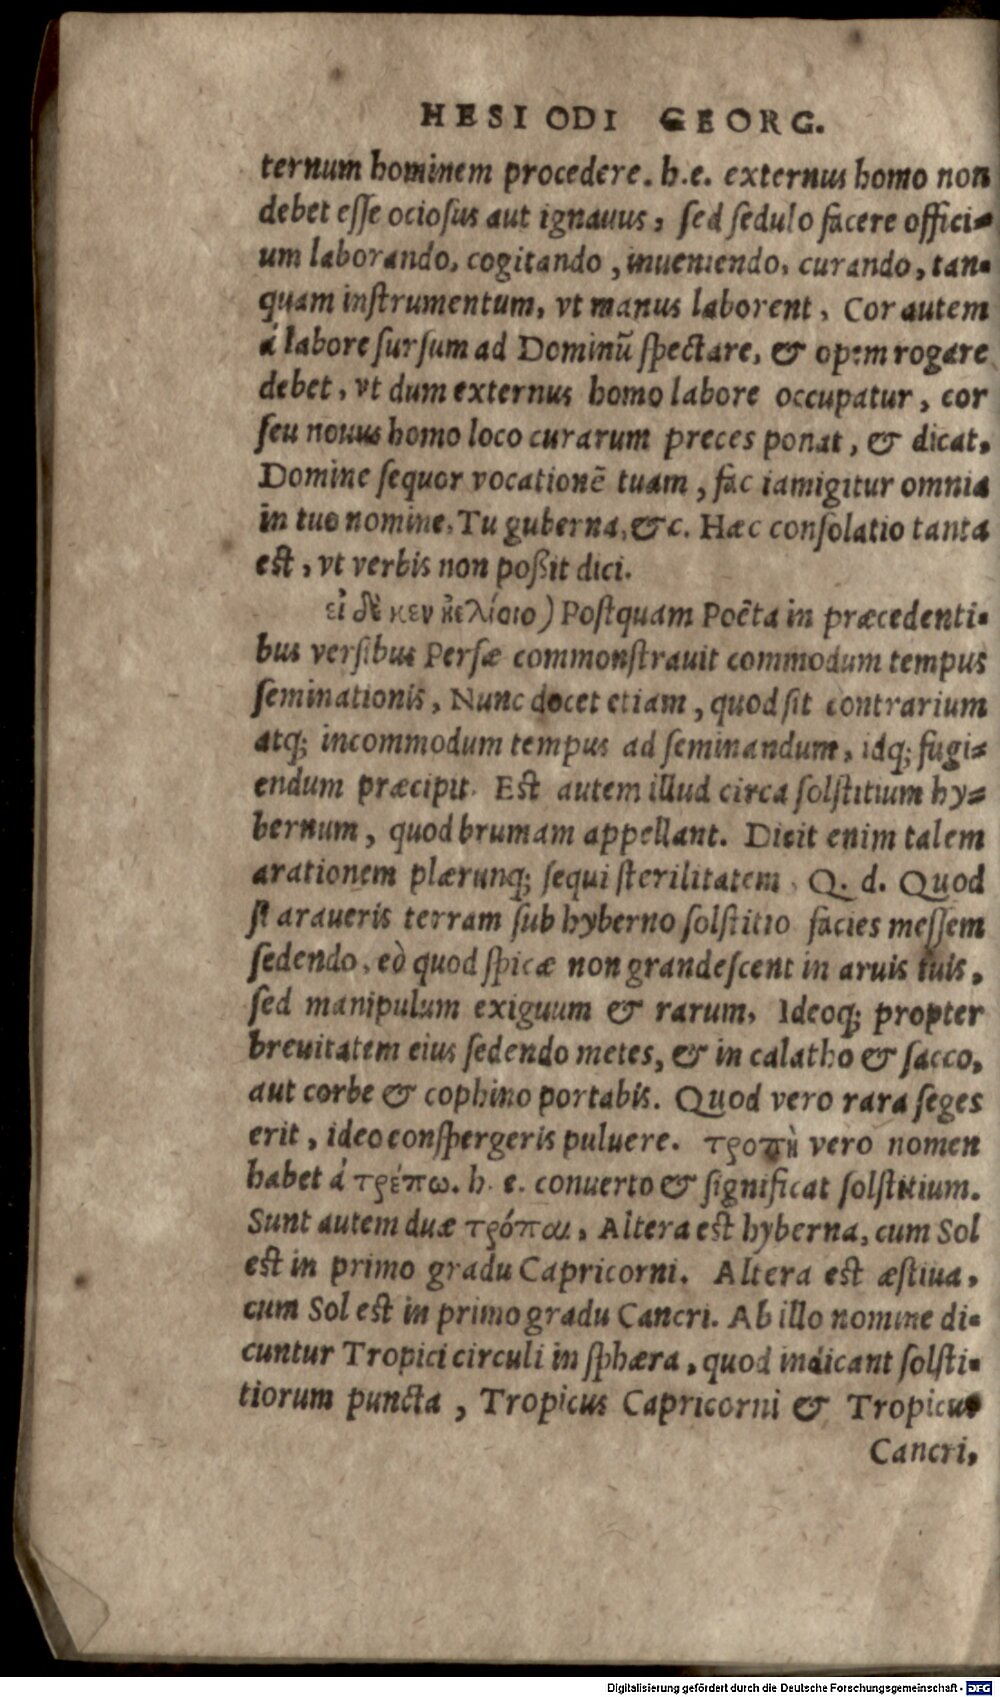 HESIODI GEORG.
ternum hominem procedere. h.e. externus homo non
debet esse ociosus aut ignauus, sed sedulo facere offici-
um laborando, cogitando, inueniendo, curando, tan-
quam instrumentum, vt manus laborent, Cor autem
á labore sursum ad Dominũ spectare, & opem rogare
debet, vt dum externus homo labore occupatur, cor
seu nouus homo loco curarum preces ponat, & dicat,
Domine sequor vocationẽ tuam, fac iam igitur omnia
in tuo nomine, Tu guberna, &c. Hæc consolatio tanta
est, vt verbis non poßit dici.
εἰ δέ κεν ἠελίοιο) Postquam Poëta in præcedenti-
bus versibus Persæ commonstrauit commodum tempus
seminationis, Nunc docet etiam, quod sit contrarium
atq; incommodum tempus ad seminandum, idq; fugi-
endum præcipit. Est autem illud circa solstitium hy-
bernum, quod brumam appellant. Dicit enim talem
arationem plærunq; sequi sterilitatem. Q. d. Quod
si araueris terram sub hyberno solstitio facies messem
sedendo, eò quod spicæ non grandescent in aruis tuis,
sed manipulum exiguum & rarum, Ideoq; propter
breuitatem eius sedendo metes, & in calatho & sacco,
aut corbe & cophino portabis. Quod vero rara seges
erit, ideo conspergeris puluere. τροπὴ vero nomen
habet á τρέπω. h. e. conuerto & significat solstitium.
Sunt autem duæ τρόπαι, Altera est hyberna, cum Sol
est in primo gradu Capricorni. Altera est æstiua,
cum Sol est in primo gradu Cancri. Ab illo nomine di-
cuntur Tropici circuli in sphæra, quod indicant solsti-
tiorum puncta, Tropicus Capricorni & Tropicus
Cancri,
Digitalisierung gefördert durch die Deutsche Forschungsgemeinschaft - DFG